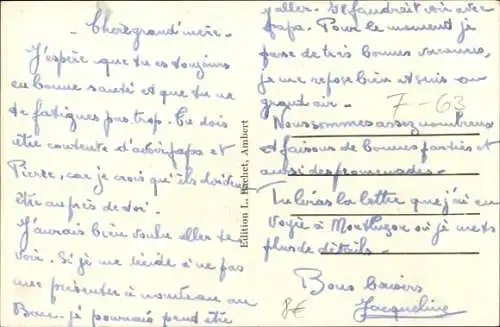 Chère grand'mère.
J'espère que tu es toujours
en bonne santé et que tu ne
te fatigues pas trop. Tu dois
être contente d'avoir papa et
Pierre, car je crois qu'ils doivent
être auprès de toi.
J'aurais bien voulu aller te
voir. Si je me décide à ne pas
me présenter à nouveau au
Bac. je pourrais peut être
y aller. Il faudrait voir avec
papa. Pour le moment je
passe de très bonnes vacances,
je me repose bien et suis au
grand air.
Nous sommes assez nombreux
et faisons de bonnes parties et
aussi des promenades.
Tu liras la lettre que j'ai
voyée à Montluçon où je mets
plus de détails.
Bons baisers
Jacqueline
7-63
8€
Edition L. Bachet, Ambert